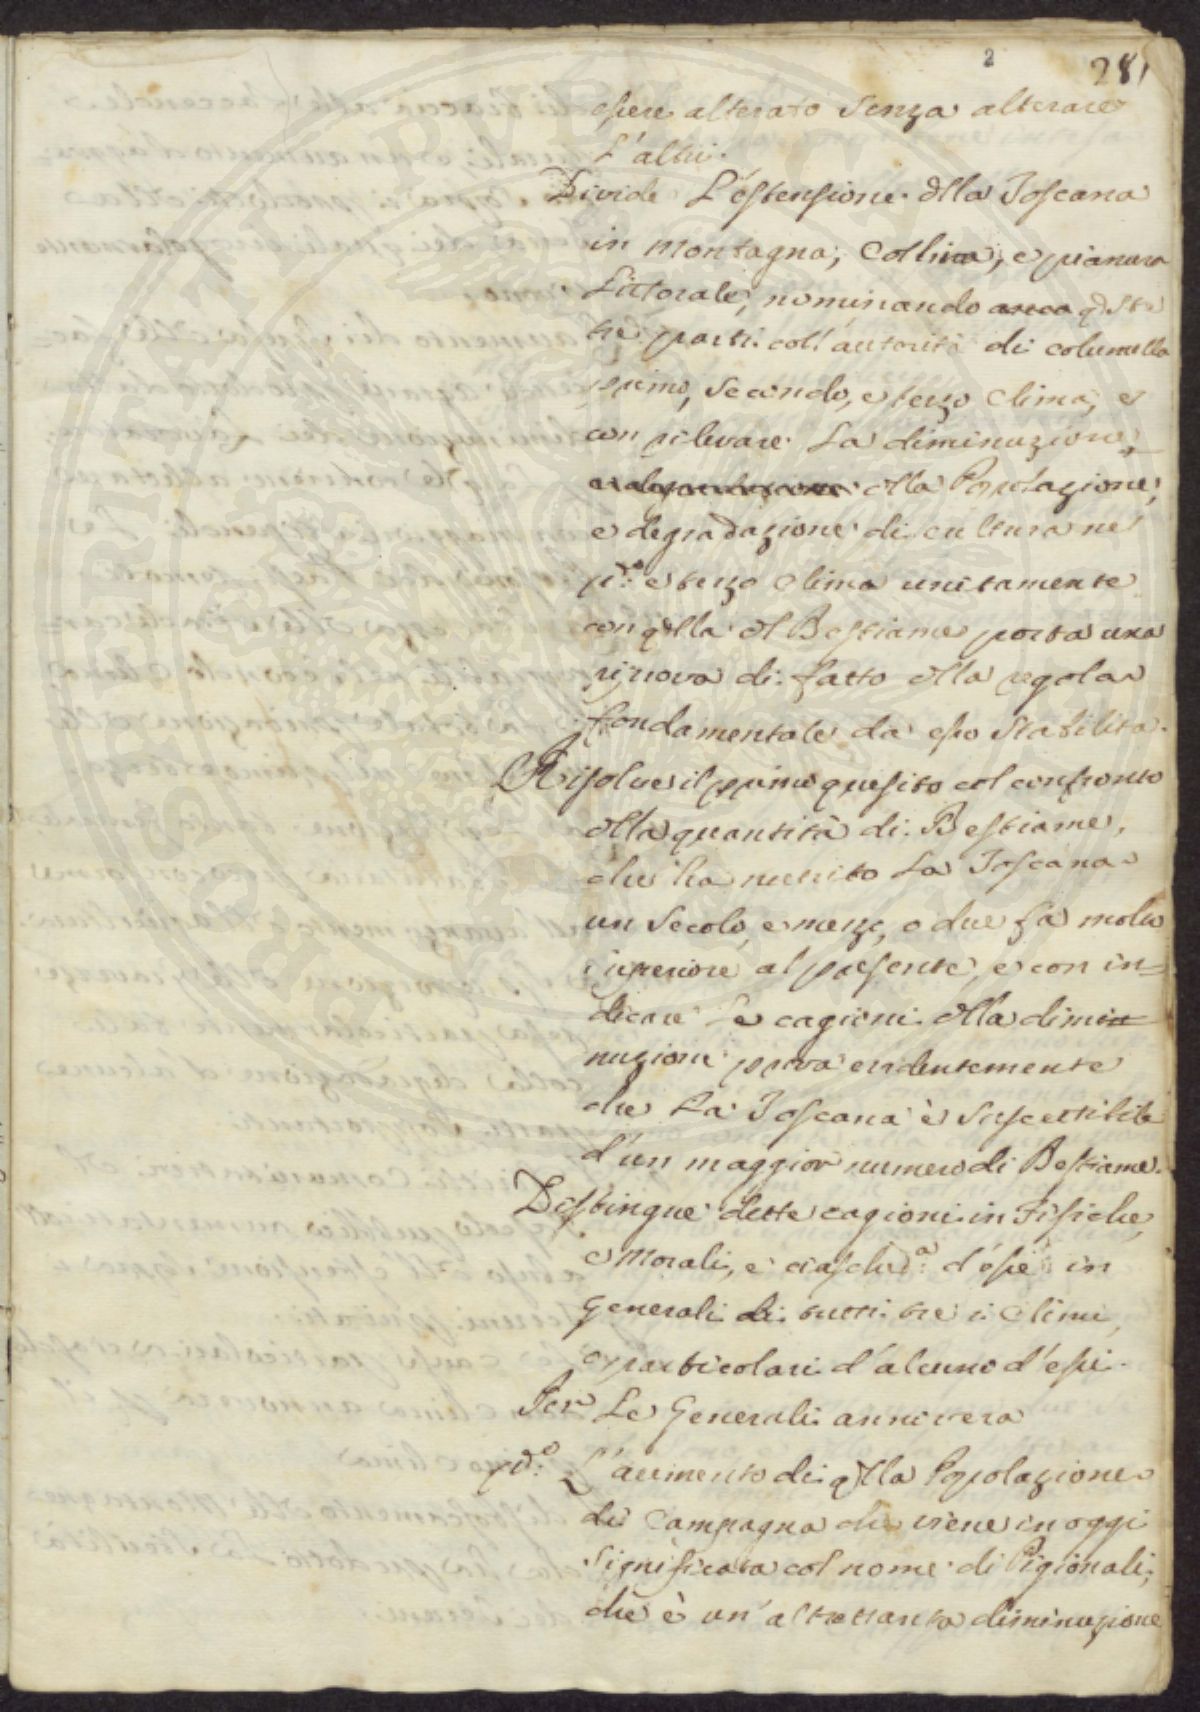 2
281
essere alterato senza alterare
l'altri.
Divide L'estensione dlla Toscana
in montagna, Collina, e pianura
Littorale, nominando queste
tre parti coll'autorità di columella
primo, secondo, e terzo Clima, e
con rilevare La diminuzione,
dlla Popolazione,
e degradazione di cultura ne
p.mo e terzo Clima unitamente
con qlla dl Bestiame porta una
riprova di fatto dlla regola
fondamentale da esso stabilita.
Risolve il primo quesito col confronto
dlla quantità di Bestiame,
che ha nutrito La Toscana
un secolo, e mezo, o due fa molto
superiore al presente, e con in=
dicare Le cagioni dlla dimi
nuzione prova evidentemente
che La Toscana è suscettibile
d'un maggior numero di Bestiame.
Distingue dette cagioni in Fisiche,
e Morali, e ciasched.a d'esse in
generali di tutti tre i Climi,
e particolari d'alcuno d'essi.
Per Le Generali annovera
p.mo L'aumento di qlla Popolazione
di Campagna che viene in oggi
significata col nome di Pigionali,
che è un'altrettanta diminuzione